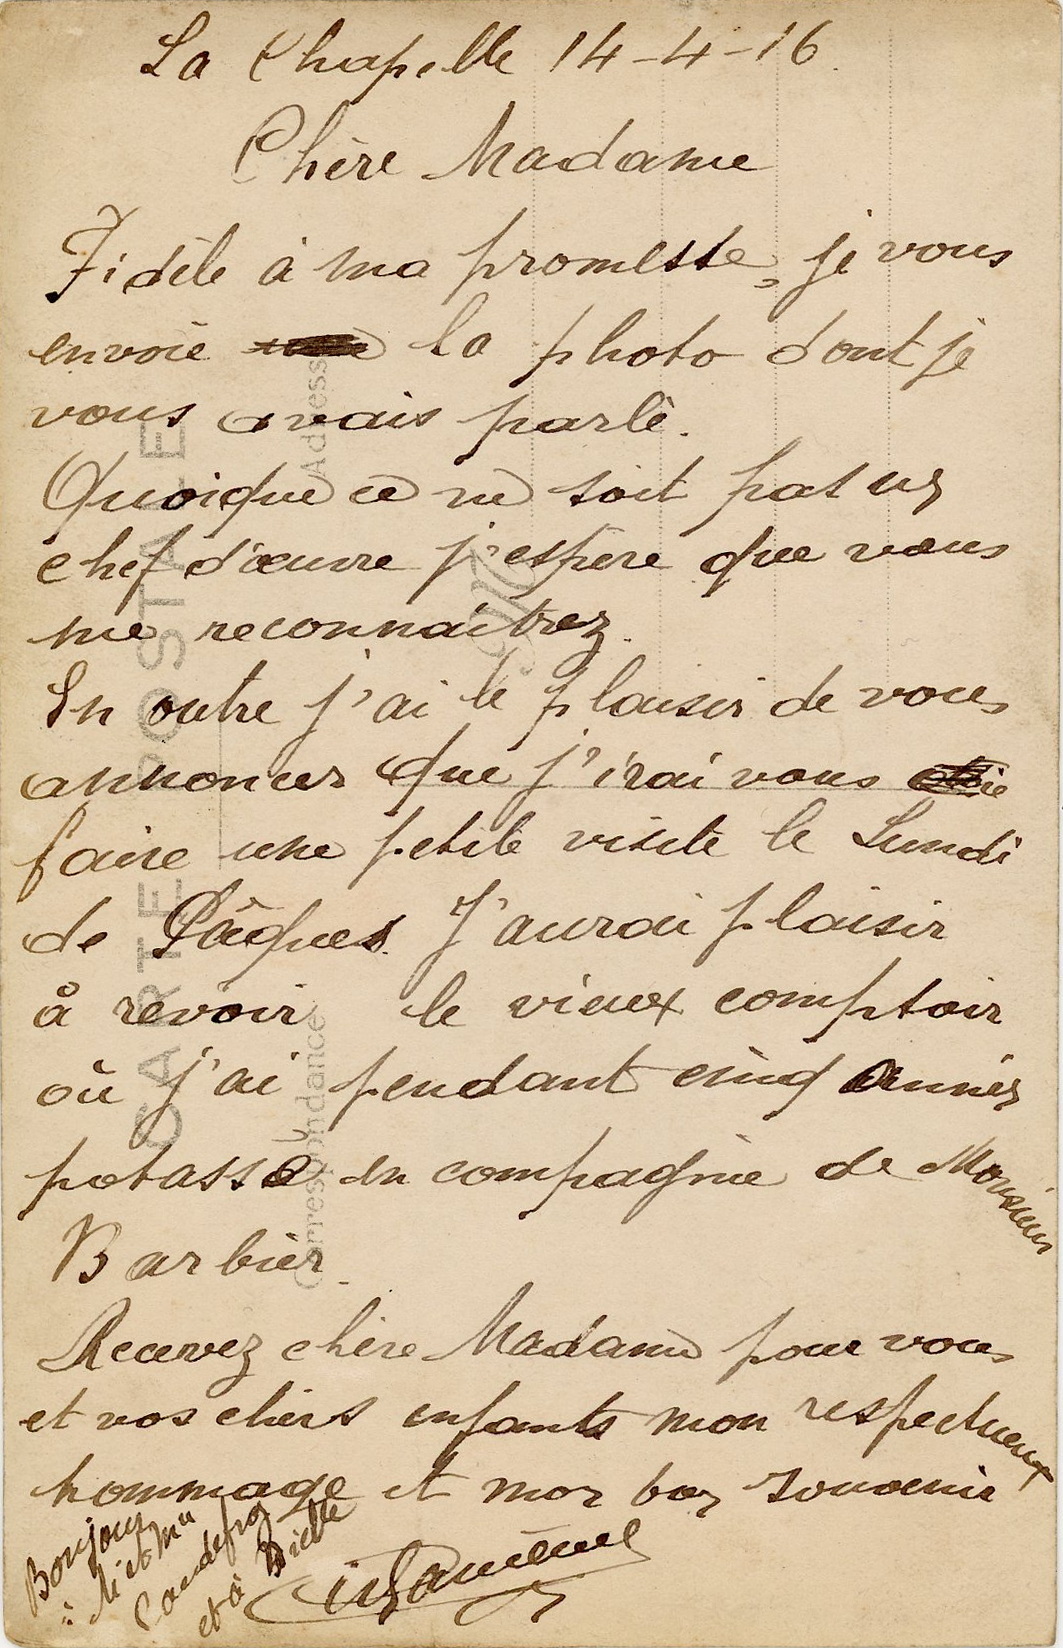 La Chapelle 14-4-16.
Chère Madame
Fidèle à ma promesse, je vous
envoie la photo dont je
vous avais parlé.
Quoique ce ne soit pas un
chef d'œuvre j'espère que vous
me reconnaîtrez.
En outre j'ai le plaisir de vous
annoncer que j'irai vous
faire une petite visite le Lundi
de Pâques. J'aurai plaisir
à revoir le vieux comptoir
où j'ai pendant cinq années
potassé en compagnie de Monsieur
Barbier.
Recevez chère Madame pour vous
et vos chers enfants mon respectueux
hommage et mon bon souvenir
Bonjour
à Mr et Mme
et à
CARTE POSTALE
Correspondance
Adresse
M